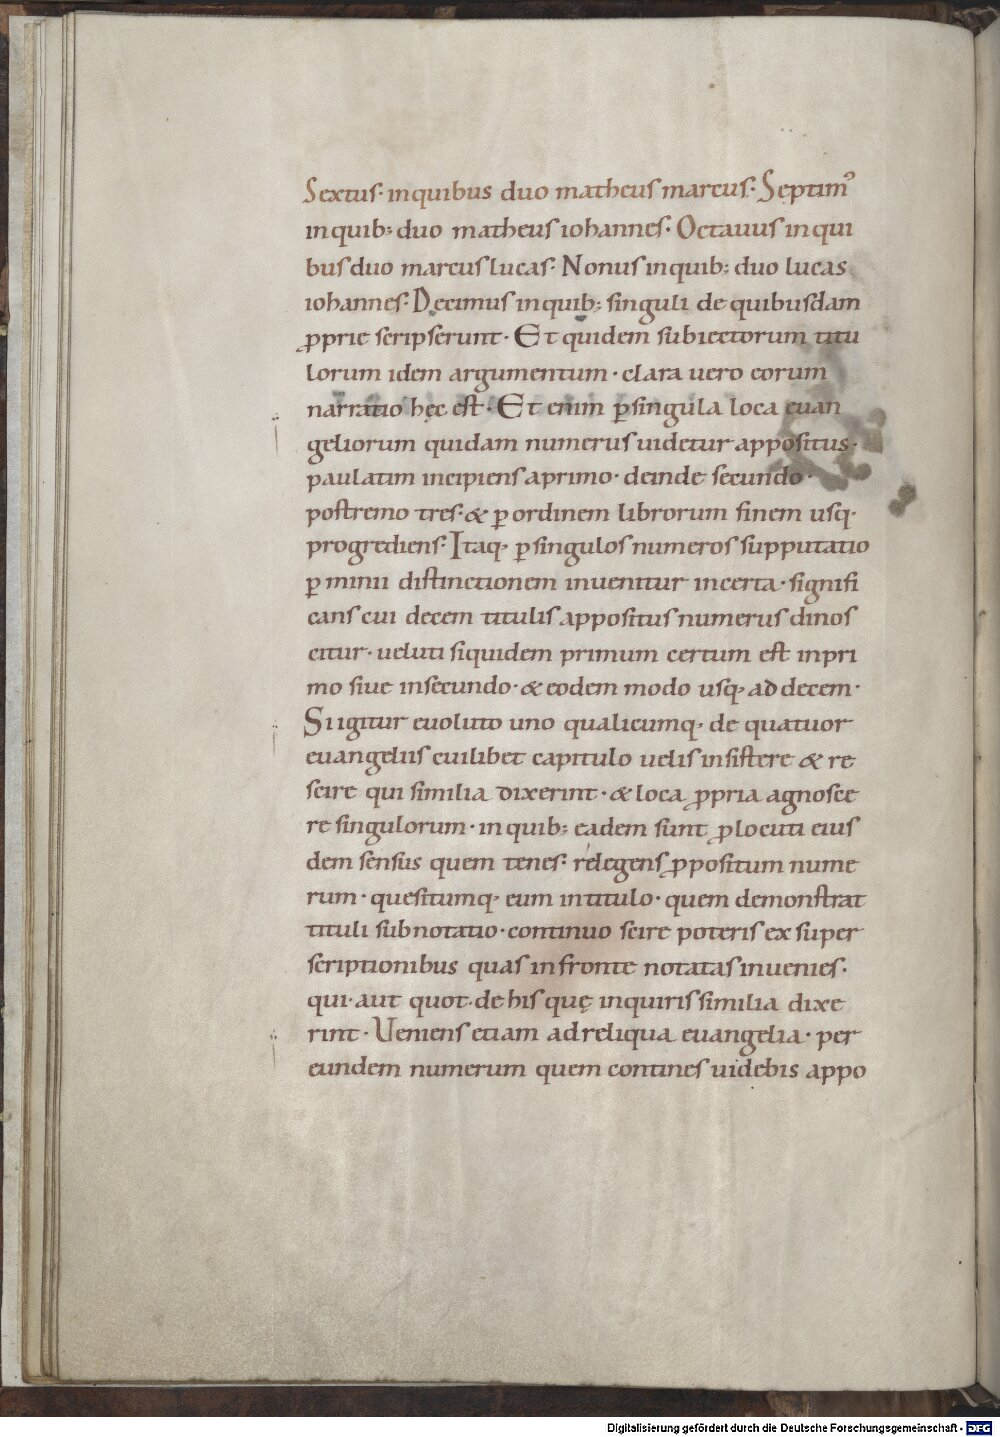 Sextus· inquibus duo matheus marcus· Septim᾽
inquib; duo matheus iohannes· Octauus inqui
bus duo marcus lucas· Nonus inquib; duo lucas
iohannes· Decimus inquib; singuli de quibusdam
ꝓprie scripserunt· Et quidem subiectorum titu
lorum idem argumentum· clara uero eorum
narratio hęc est· Et enim ꝑsingula loca euan
geliorum quidam numerus uidetur appositus·
paulatim incipiens aprimo· deinde secundo·
postremo tres· & ꝑ ordinem librorum finem usq·
progrediens· Itaq· ꝑsingulos numeros supputatio
ꝑ minii distinctionem inuenitur incerta· signifi
cans cui decem titulis appositus numerus dinos
citur· ueluti siquidem primum certum est inpri
mo siue insecundo· & eodem modo usq· ad decem·
Si igitur euoluto uno qualicumq· de quatuor
euangeliis cuilibet capitulo uelis insistere & re
scire qui similia dixerint· & loca ꝓpria agnosce
re singulorum· inquib; eadem sunt ꝓlocuti eius
dem sensus quem tenes· relegens ꝓpositum nume
rum· quesitumq· eum intitulo· quem demonstrat
tituli subnotatio· continuo scire poteris ex super
scriptionibus quas infronte notatas inuenies·
qui· aut quot· de his quę inquiris similia dixe
rint· Ueniens etiam adreliqua euangelia· per
eundem numerum quem contines uidebis appo
Digitalisierung gefördert durch die Deutsche Forschungsgemeinschaft - DFG